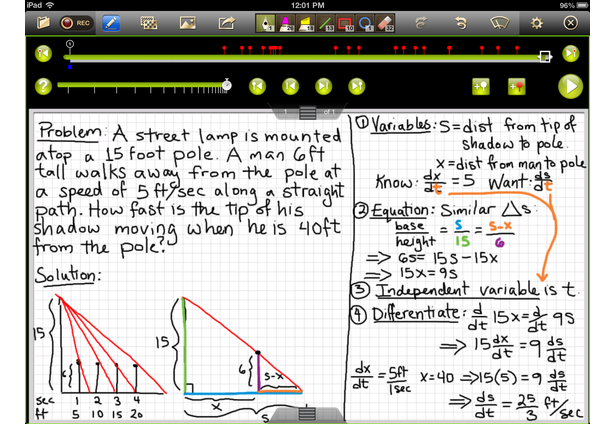 iPad
12:01 PM
96%
REC
1
of 1
Problem: A street lamp is mounted
atop a 15 foot pole. A man 6ft
tall walks away from the pole at
a speed of 5 ft/sec along a straight
path. How fast is the tip of his
shadow moving when he is 40ft
from the pole?
Solution:
15
6
sec 1 2 3 4
ft 5 10 15 20
15
6
s-x
x
s
① Variables: S = dist from tip of
shadow to pole.
x = dist from man to pole
Know: dx/dt = 5 Want: ds/dt
② Equation: Similar △s:
base/height = s/15 = s-x/6
⇒ 6s = 15s - 15x
⇒ 15x = 9s
③ Independent variable is t.
④ Differentiate: d/dt 15x = d/dt 9s
⇒ 15 dx/dt = 9 ds/dt
dx/dt = 5ft/1sec x=40 ⇒ 15(5) = 9 ds/dt
⇒ ds/dt = 25/3 ft/sec